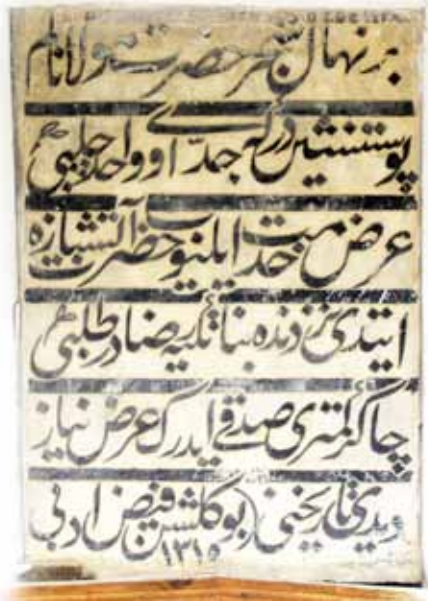 بر نهال ثمر حضرت مولانا نام
پوستنشین درکه جدی او واحد چلبی
عرض خدمت ایلیوب حضرت آتشبازه
ایتدی نزدنده بنا تکیه رضادر طلبی
چاکر کمتری صدقی ایدرک عرض نیاز
دیدی تاریخنی (بو گلشن فیض ادبی
١٣١٥